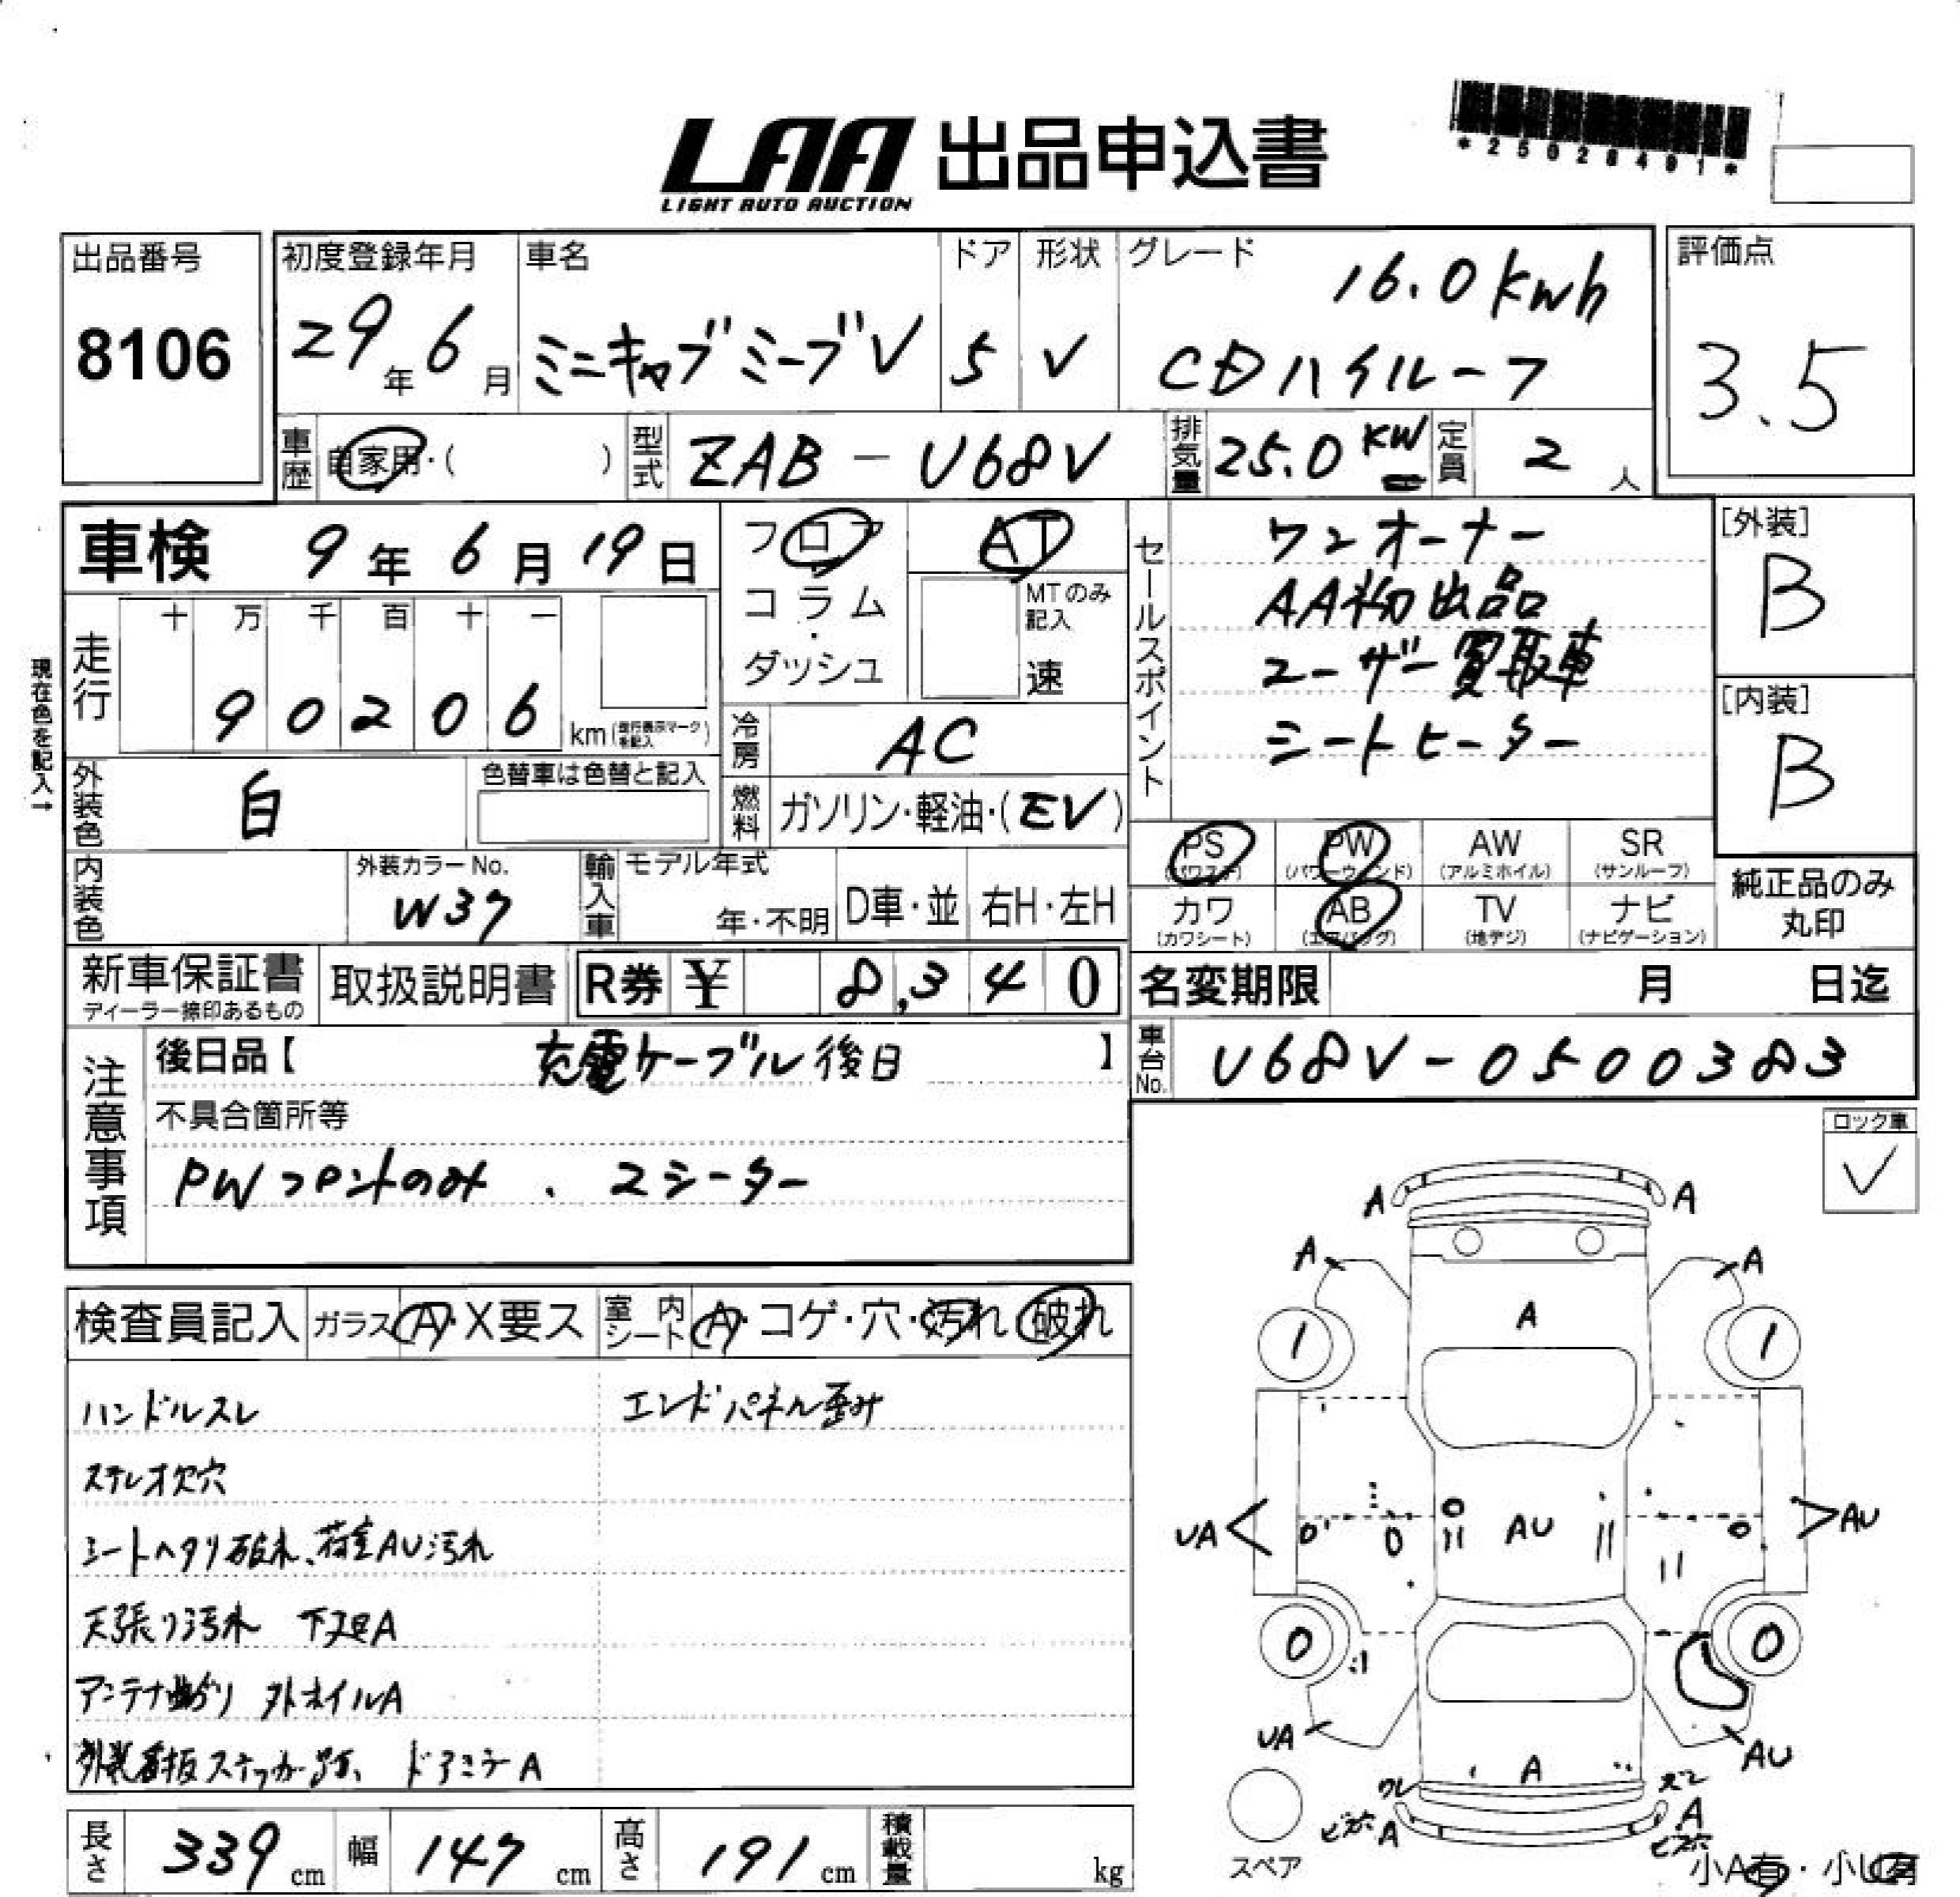 LAA 出品申込書
LIGHT AUTO AUCTION
*25028491*
出品番号
8106
初度登録年月
29年6月
車名
ミニキャブミーブV
ドア
5
形状
V
グレード
16.0kwh
CDハイルーフ
評価点
3.5
車歴
自家用・( )
型式
ZAB-U68V
排気量
25.0KW
定員
2人
車検 9年6月19日
走行
十 万 千 百 十 一
90206
km(走行表示マークを記入)
現在色を記入→
外装色
白
色替車は色替と記入
内装色
外装カラーNo.
W37
フロア
コラム
・
ダッシュ
AT
MTのみ記入
速
冷房
AC
燃料
ガソリン・軽油・(EV)
輸入車
モデル年式
年・不明
D車・並
右H・左H
セールスポイント
ワンオーナー
AA初出品
ユーザー買取車
シートヒーター
[外装]
B
[内装]
B
PS (パワステ)
PW (パワーウィンド)
AW (アルミホイル)
SR (サンルーフ)
カワ (カワシート)
AB (エアバッグ)
TV (地デジ)
ナビ (ナビゲーション)
純正品のみ
丸印
新車保証書
ディーラー捺印あるもの
取扱説明書
R券 ¥ 8,340
名変期限 月 日迄
注意事項
後日品【 充電ケーブル後日 】
不具合箇所等
PWフロントのみ、2シーター
車台No.
U68V-0500383
ロック車
✓
検査員記入
ガラス A・X要ス
室内シート A・コゲ・穴・汚れ 破れ
ハンドルスレ
エンドパネル歪み
ステレオ欠穴
シートヘタリ破れ、荷室AU汚れ
天張り汚れ 下廻A
アンテナ曲がり 外ホイルA
外装看板ステッカー跡、ドアミラーA
A A
A A
A
1 1
UA AU AU
0 0
UA AU
ワレ A ズレ
ビス穴 A A
ビス穴
スペア
小A有・小U有
長さ 339cm
幅 147cm
高さ 191cm
積載量 kg